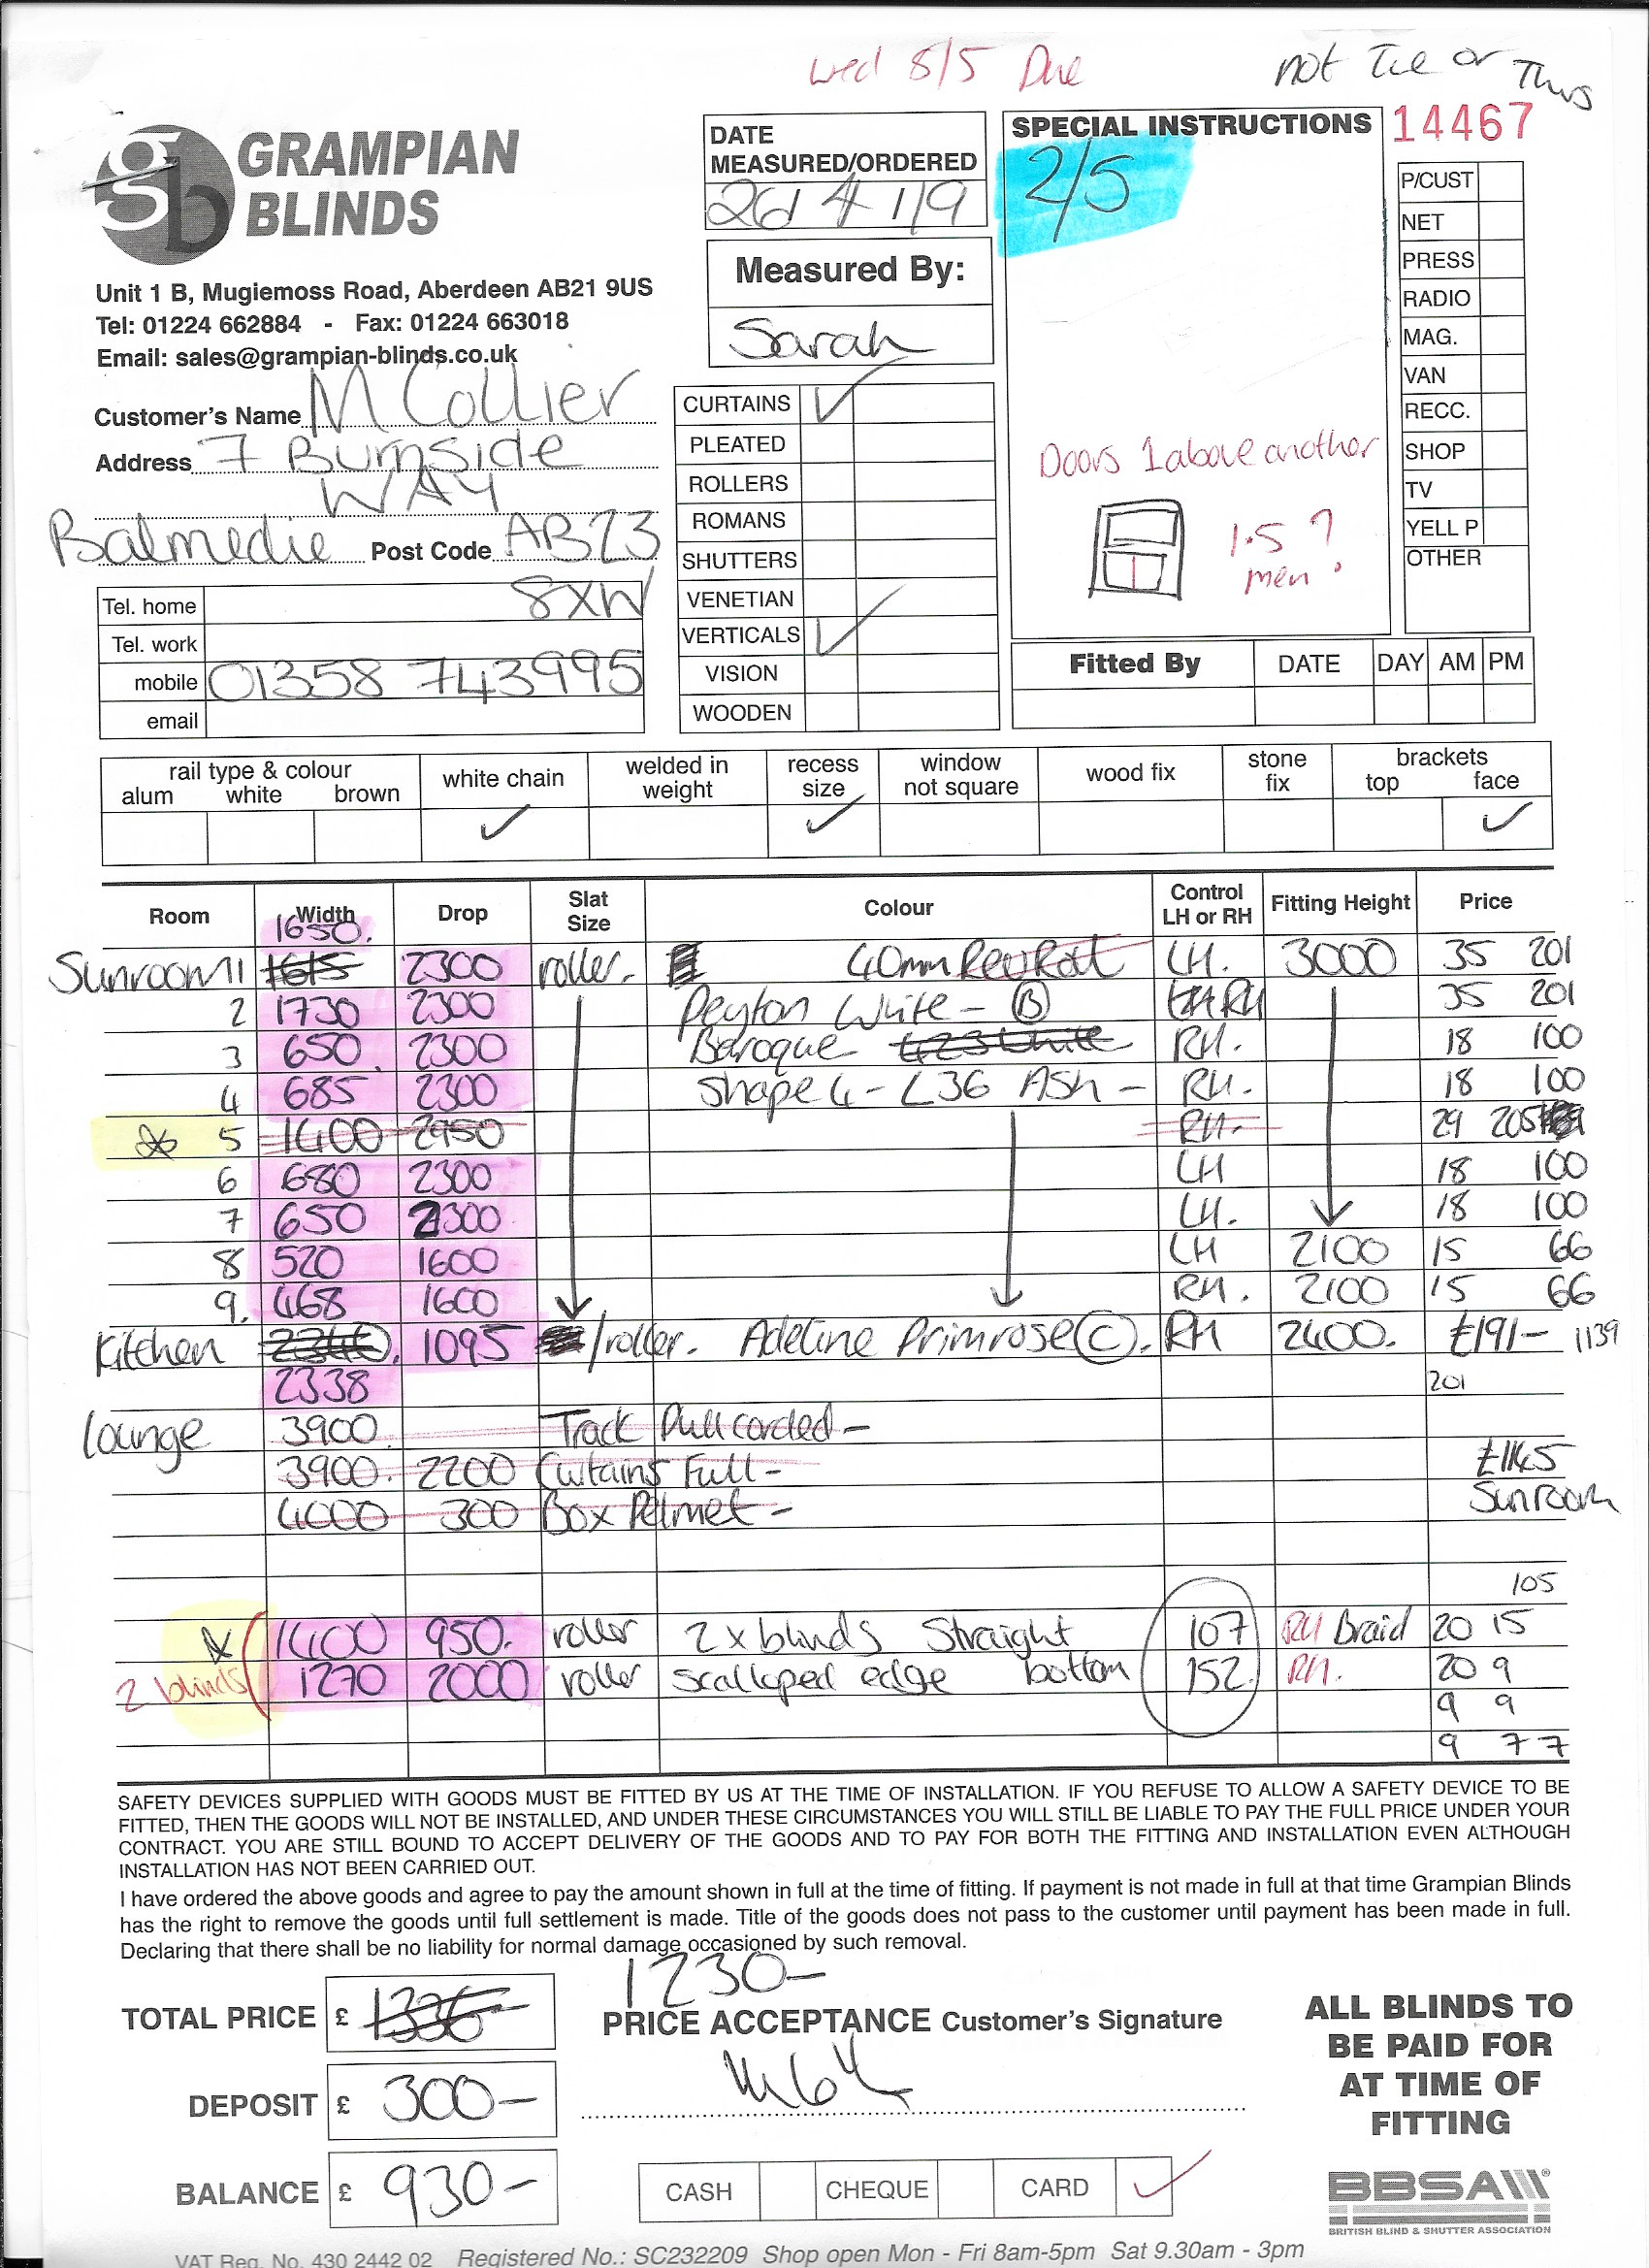 wed 8/5 Due
not Tue or Thurs
GRAMPIAN BLINDS
Unit 1 B, Mugiemoss Road, Aberdeen AB21 9US
Tel: 01224 662884 - Fax: 01224 663018
Email: sales@grampian-blinds.co.uk
Customer's Name M Collier
Address 7 Burnside
WAY
Balmedie Post Code AB23
8XW
Tel. home
Tel. work
mobile 01358 743995
email
DATE
MEASURED/ORDERED
26 4 19
Measured By:
Sarah
CURTAINS ✓
PLEATED
ROLLERS
ROMANS
SHUTTERS
VENETIAN
VERTICALS ✓
VISION
WOODEN
SPECIAL INSTRUCTIONS
2/5
Doors 1 above another
1.5 ?
men
14467
P/CUST
NET
PRESS
RADIO
MAG.
VAN
RECC.
SHOP
TV
YELL P
OTHER
Fitted By DATE DAY AM PM
rail type & colour
alum white brown
white chain ✓
welded in weight
recess size ✓
window not square
wood fix
stone fix
brackets
top face ✓
Room Width Drop Slat Size Colour Control LH or RH Fitting Height Price
1650.
Sunroom 1 1615 2300 roller. 40mm Rev Rol LH. 3000 35 201
2 1730 2300 Peyton White - B RH 35 201
3 650 2300 Baroque RH. 18 100
4 685 2300 Shape 4 - L36 Ash - RH. 18 100
5 1400 2950 RH. 29 205
6 680 2300 LH 18 100
7 650 2300 LH. 18 100
8 520 1600 LH 2100 15 66
9. 468 1600 RH. 2100 15 66
Kitchen 2340 1095 /roller. Adeline Primrose C. RH 2400. £191- 1139
2338 201
Lounge 3900 Track Pull corded -
3900. 2200 Curtains Full - £1145
4000 300 Box Pelmet - Sunroom
105
1400 950. roller 2 x blinds Straight 107 RH Braid 20 15
2 blinds 1270 2000 roller scalloped edge bottom 152 RH. 20 9
9 9
9 77
SAFETY DEVICES SUPPLIED WITH GOODS MUST BE FITTED BY US AT THE TIME OF INSTALLATION. IF YOU REFUSE TO ALLOW A SAFETY DEVICE TO BE
FITTED, THEN THE GOODS WILL NOT BE INSTALLED, AND UNDER THESE CIRCUMSTANCES YOU WILL STILL BE LIABLE TO PAY THE FULL PRICE UNDER YOUR
CONTRACT. YOU ARE STILL BOUND TO ACCEPT DELIVERY OF THE GOODS AND TO PAY FOR BOTH THE FITTING AND INSTALLATION EVEN ALTHOUGH
INSTALLATION HAS NOT BEEN CARRIED OUT.
I have ordered the above goods and agree to pay the amount shown in full at the time of fitting. If payment is not made in full at that time Grampian Blinds
has the right to remove the goods until full settlement is made. Title of the goods does not pass to the customer until payment has been made in full.
Declaring that there shall be no liability for normal damage occasioned by such removal.
1230-
TOTAL PRICE £ 1336
PRICE ACCEPTANCE Customer's Signature
DEPOSIT £ 300-
BALANCE £ 930-
CASH CHEQUE CARD ✓
ALL BLINDS TO
BE PAID FOR
AT TIME OF
FITTING
BBSA
BRITISH BLIND & SHUTTER ASSOCIATION
VAT Reg. No. 430 2442 02 Registered No.: SC232209 Shop open Mon - Fri 8am-5pm Sat 9.30am - 3pm